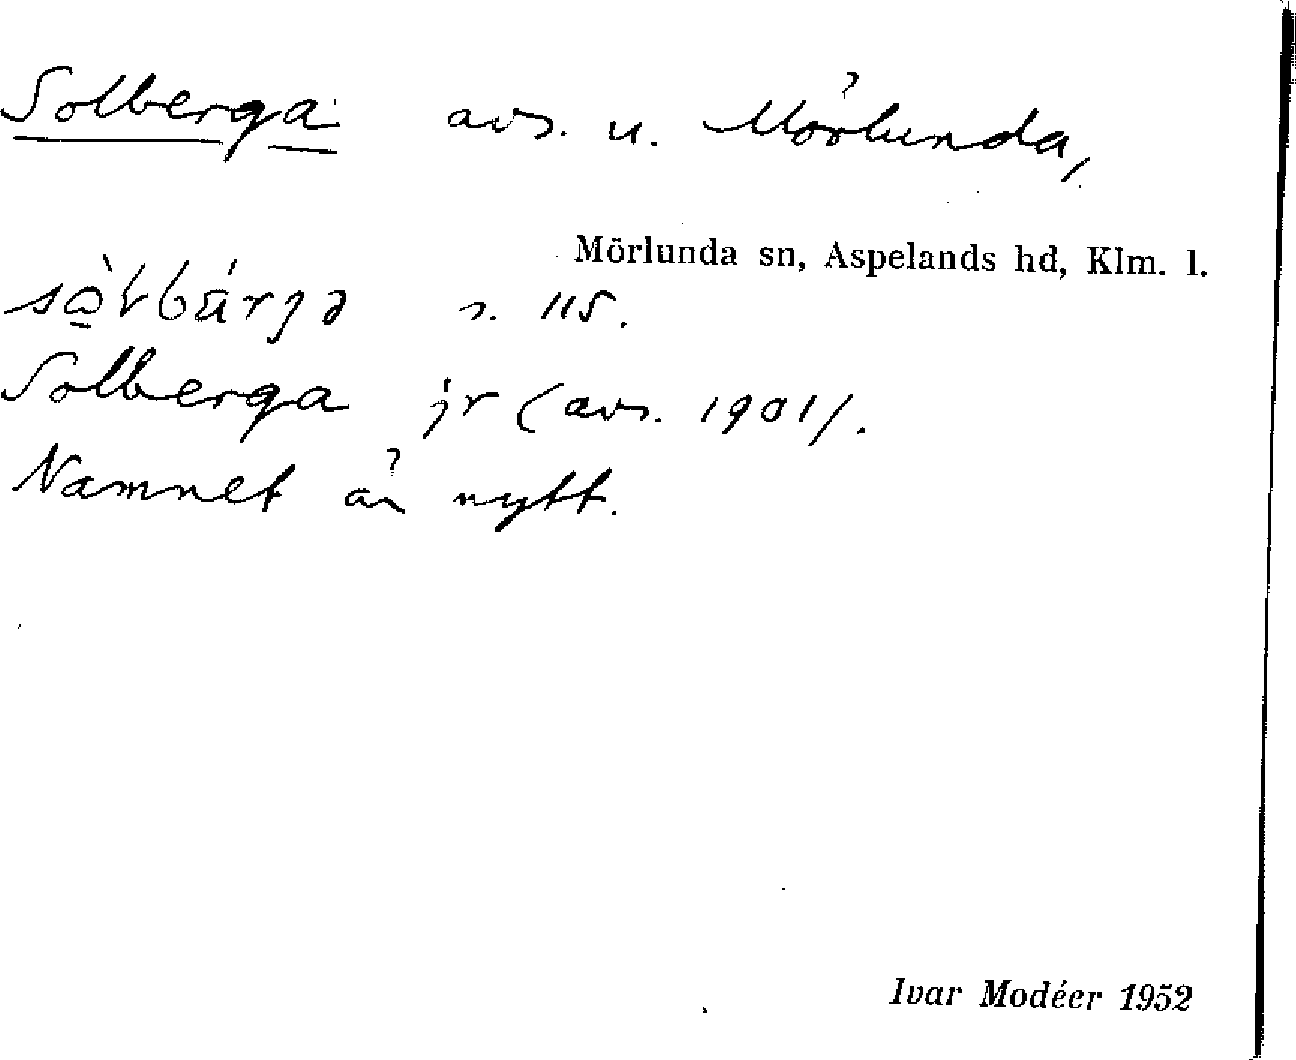 Solberga avs. u. Mörlunda,
Mörlunda sn, Aspelands hd, Klm. l.
s. 115.
Solberga jr (avs. 1901).
Namnet är nytt.
Ivar Modéer 1952